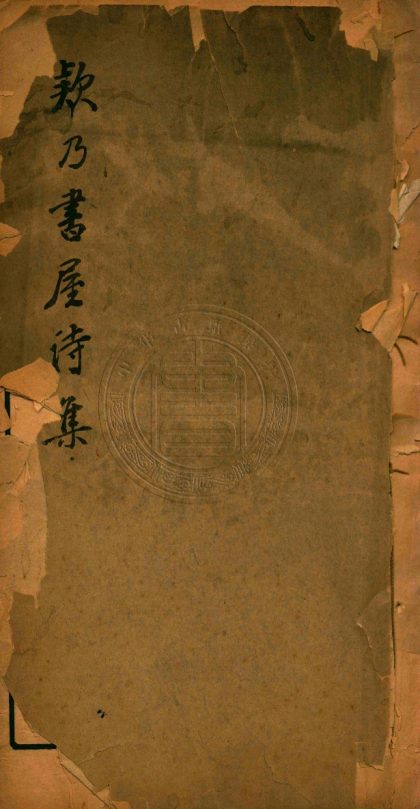 欵乃書屋诗集